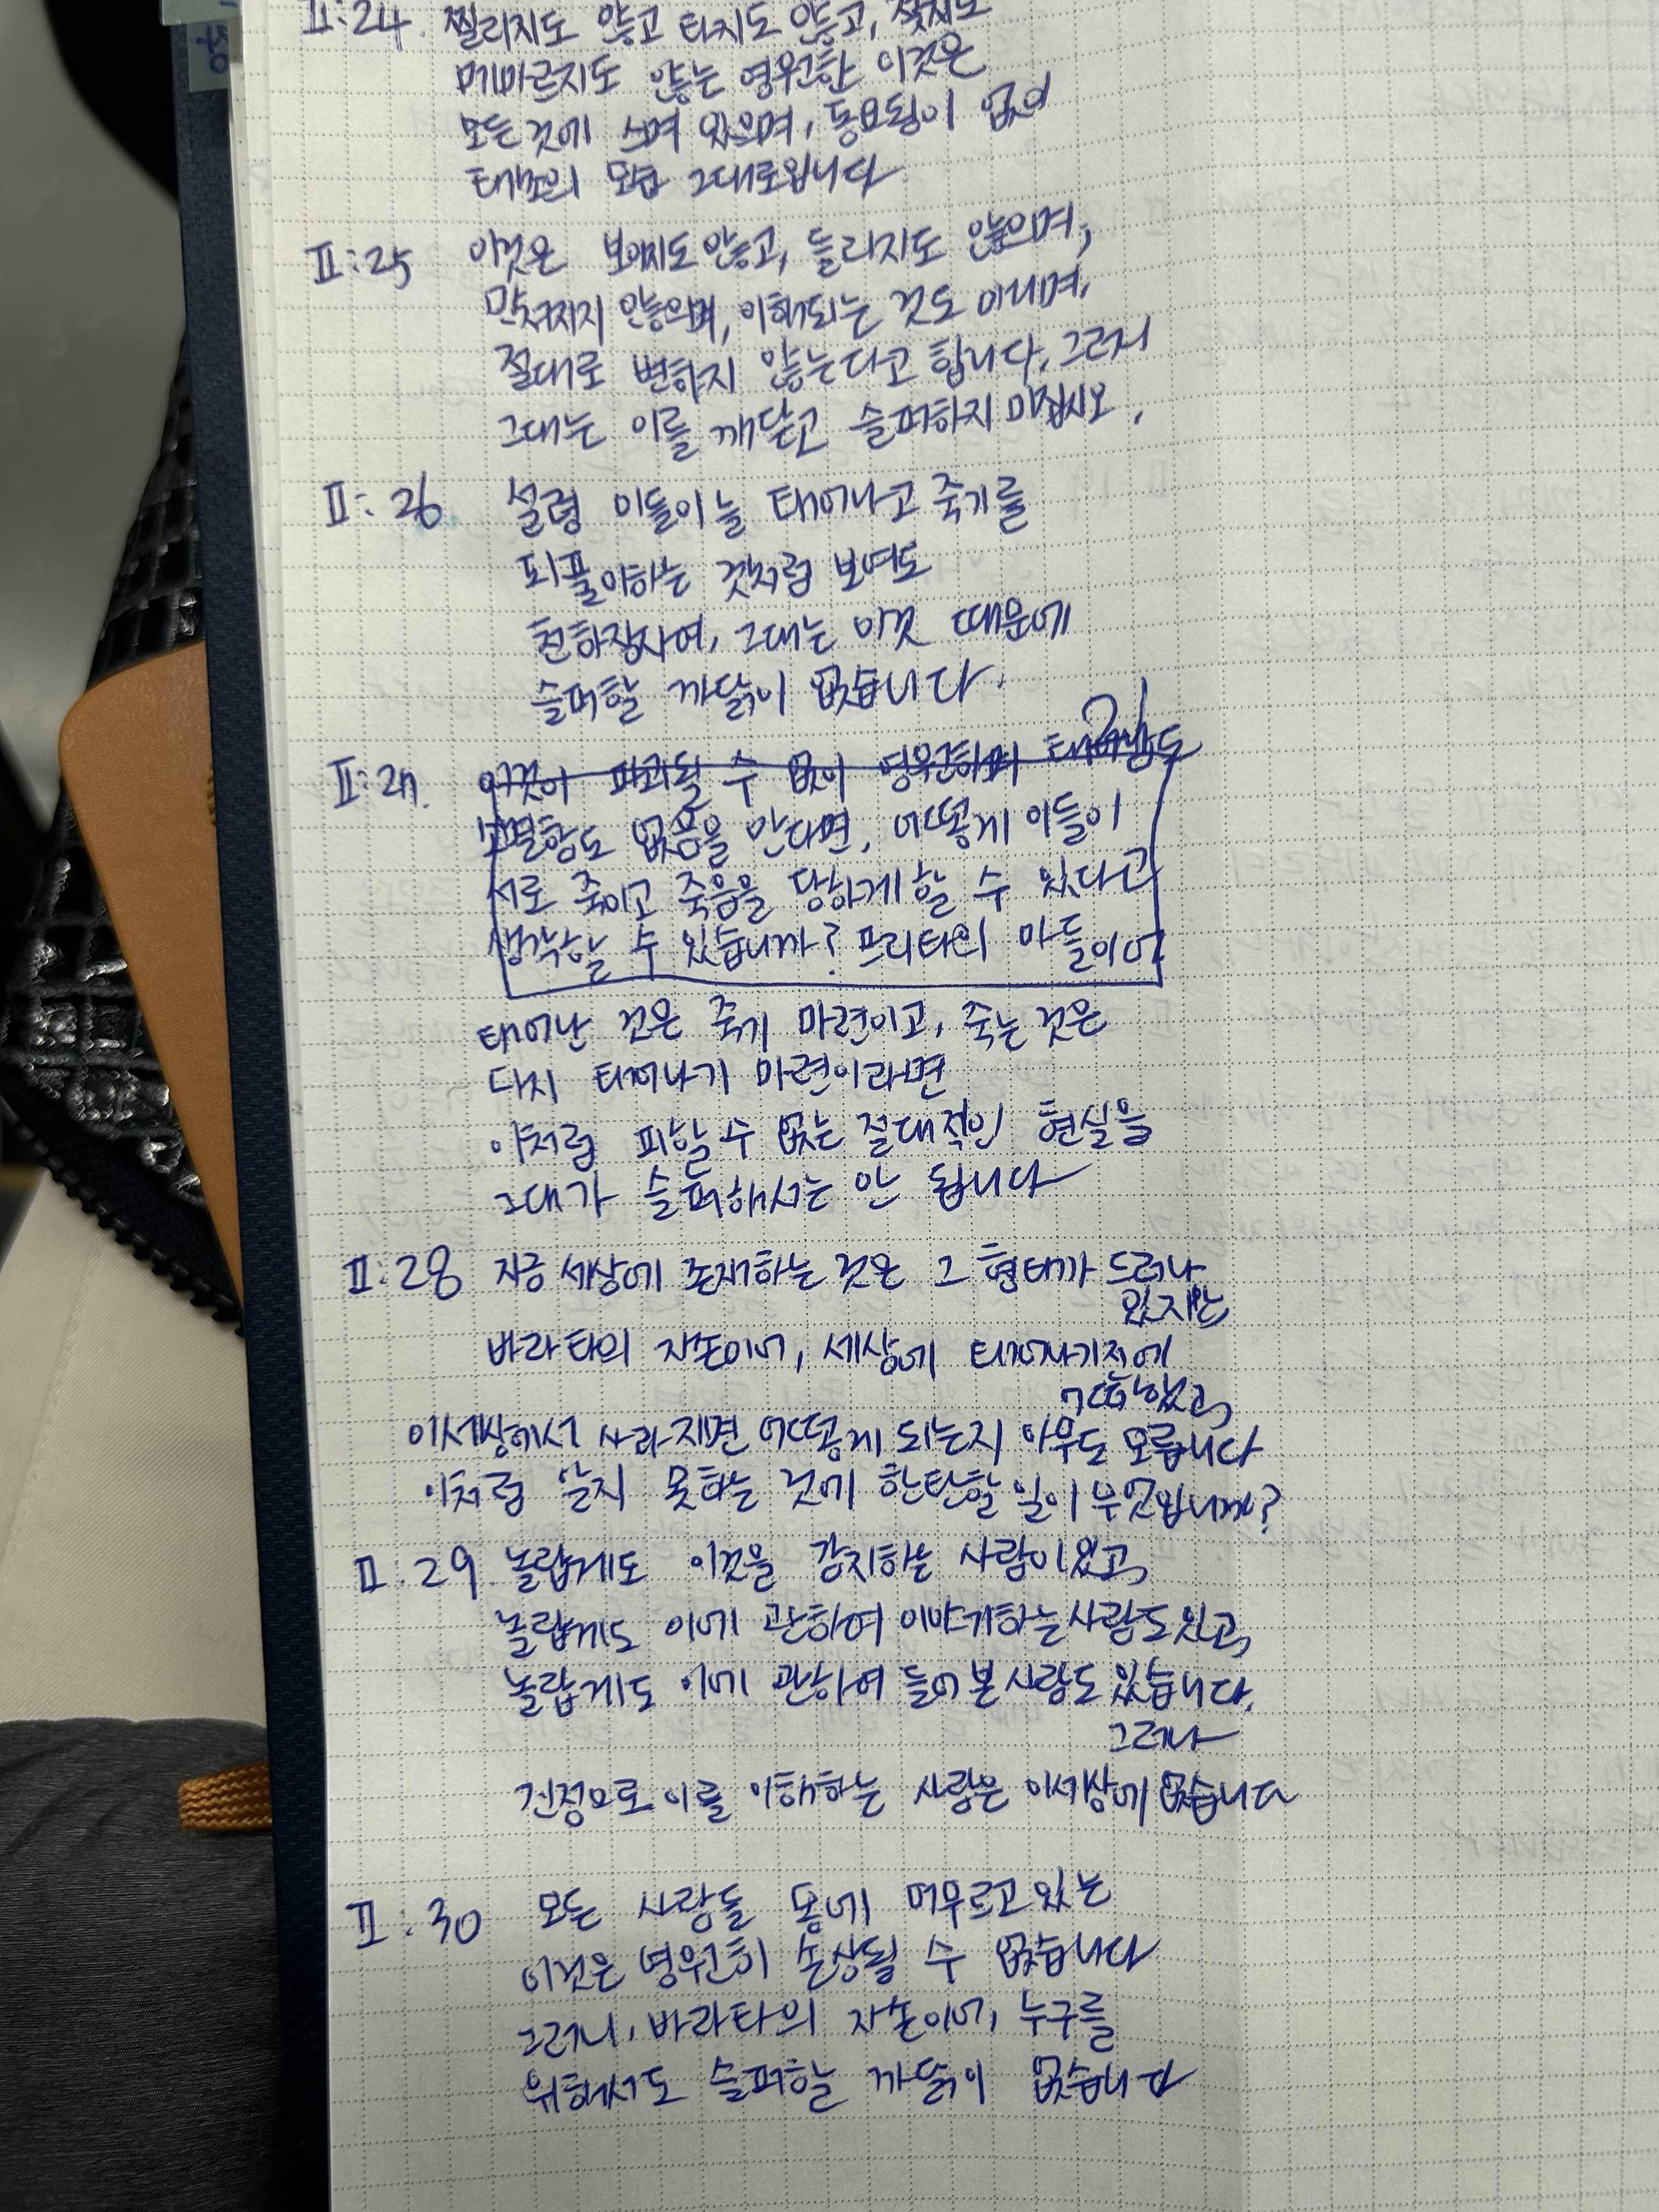 II:24. 찔리지도 않고 타지도 않고, 젖지도
메마르지도 않는 영원한 이것은
모든 것에 스며 있으며, 동요됨이 없이
태초의 모습 그대로입니다
II:25 이것은 보이지도 않고, 들리지도 않으며,
만져지지 않으며, 이해되는 것도 아니며,
절대로 변하지 않는다고 합니다. 그러니
그대는 이를 깨닫고 슬퍼하지 마십시오.
II:26 설령 이들이 늘 태어나고 죽기를
되풀이하는 것처럼 보여도
천하장사여, 그대는 이것 때문에
슬퍼할 까닭이 없습니다.
21
II:27. 이것이 파괴될 수 없이 영원하며 태어남도
소멸함도 없음을 안다면, 어떻게 이들이
서로 죽이고 죽음을 당하게 할 수 있다고
생각할 수 있습니까? 프리타의 아들이여
태어난 것은 죽기 마련이고, 죽는 것은
다시 태어나기 마련이라면
이처럼 피할 수 없는 절대적인 현실을
그대가 슬퍼해서는 안 됩니다
II:28 지금 세상에 존재하는 것은 그 형태가 드러나
있지만
바라타의 자손이여, 세상에 태어나기전에
어떠했고,
이세상에서 사라지면 어떻게 되는지 아무도 모릅니다
이처럼 알지 못하는 것에 한탄할 일이 무엇입니까?
II.29 놀랍게도 이것을 감지하는 사람이 있고,
놀랍게도 이에 관하여 이야기하는 사람도 있고,
놀랍게도 이에 관하여 들어 본 사람도 있습니다.
그러나
진정으로 이를 이해하는 사람은 이세상에 없습니다
II:30 모든 사람들 몸에 머무르고 있는
이것은 영원히 손상될 수 없습니다
그러니, 바라타의 자손이여, 누구를
위해서도 슬퍼할 까닭이 없습니다